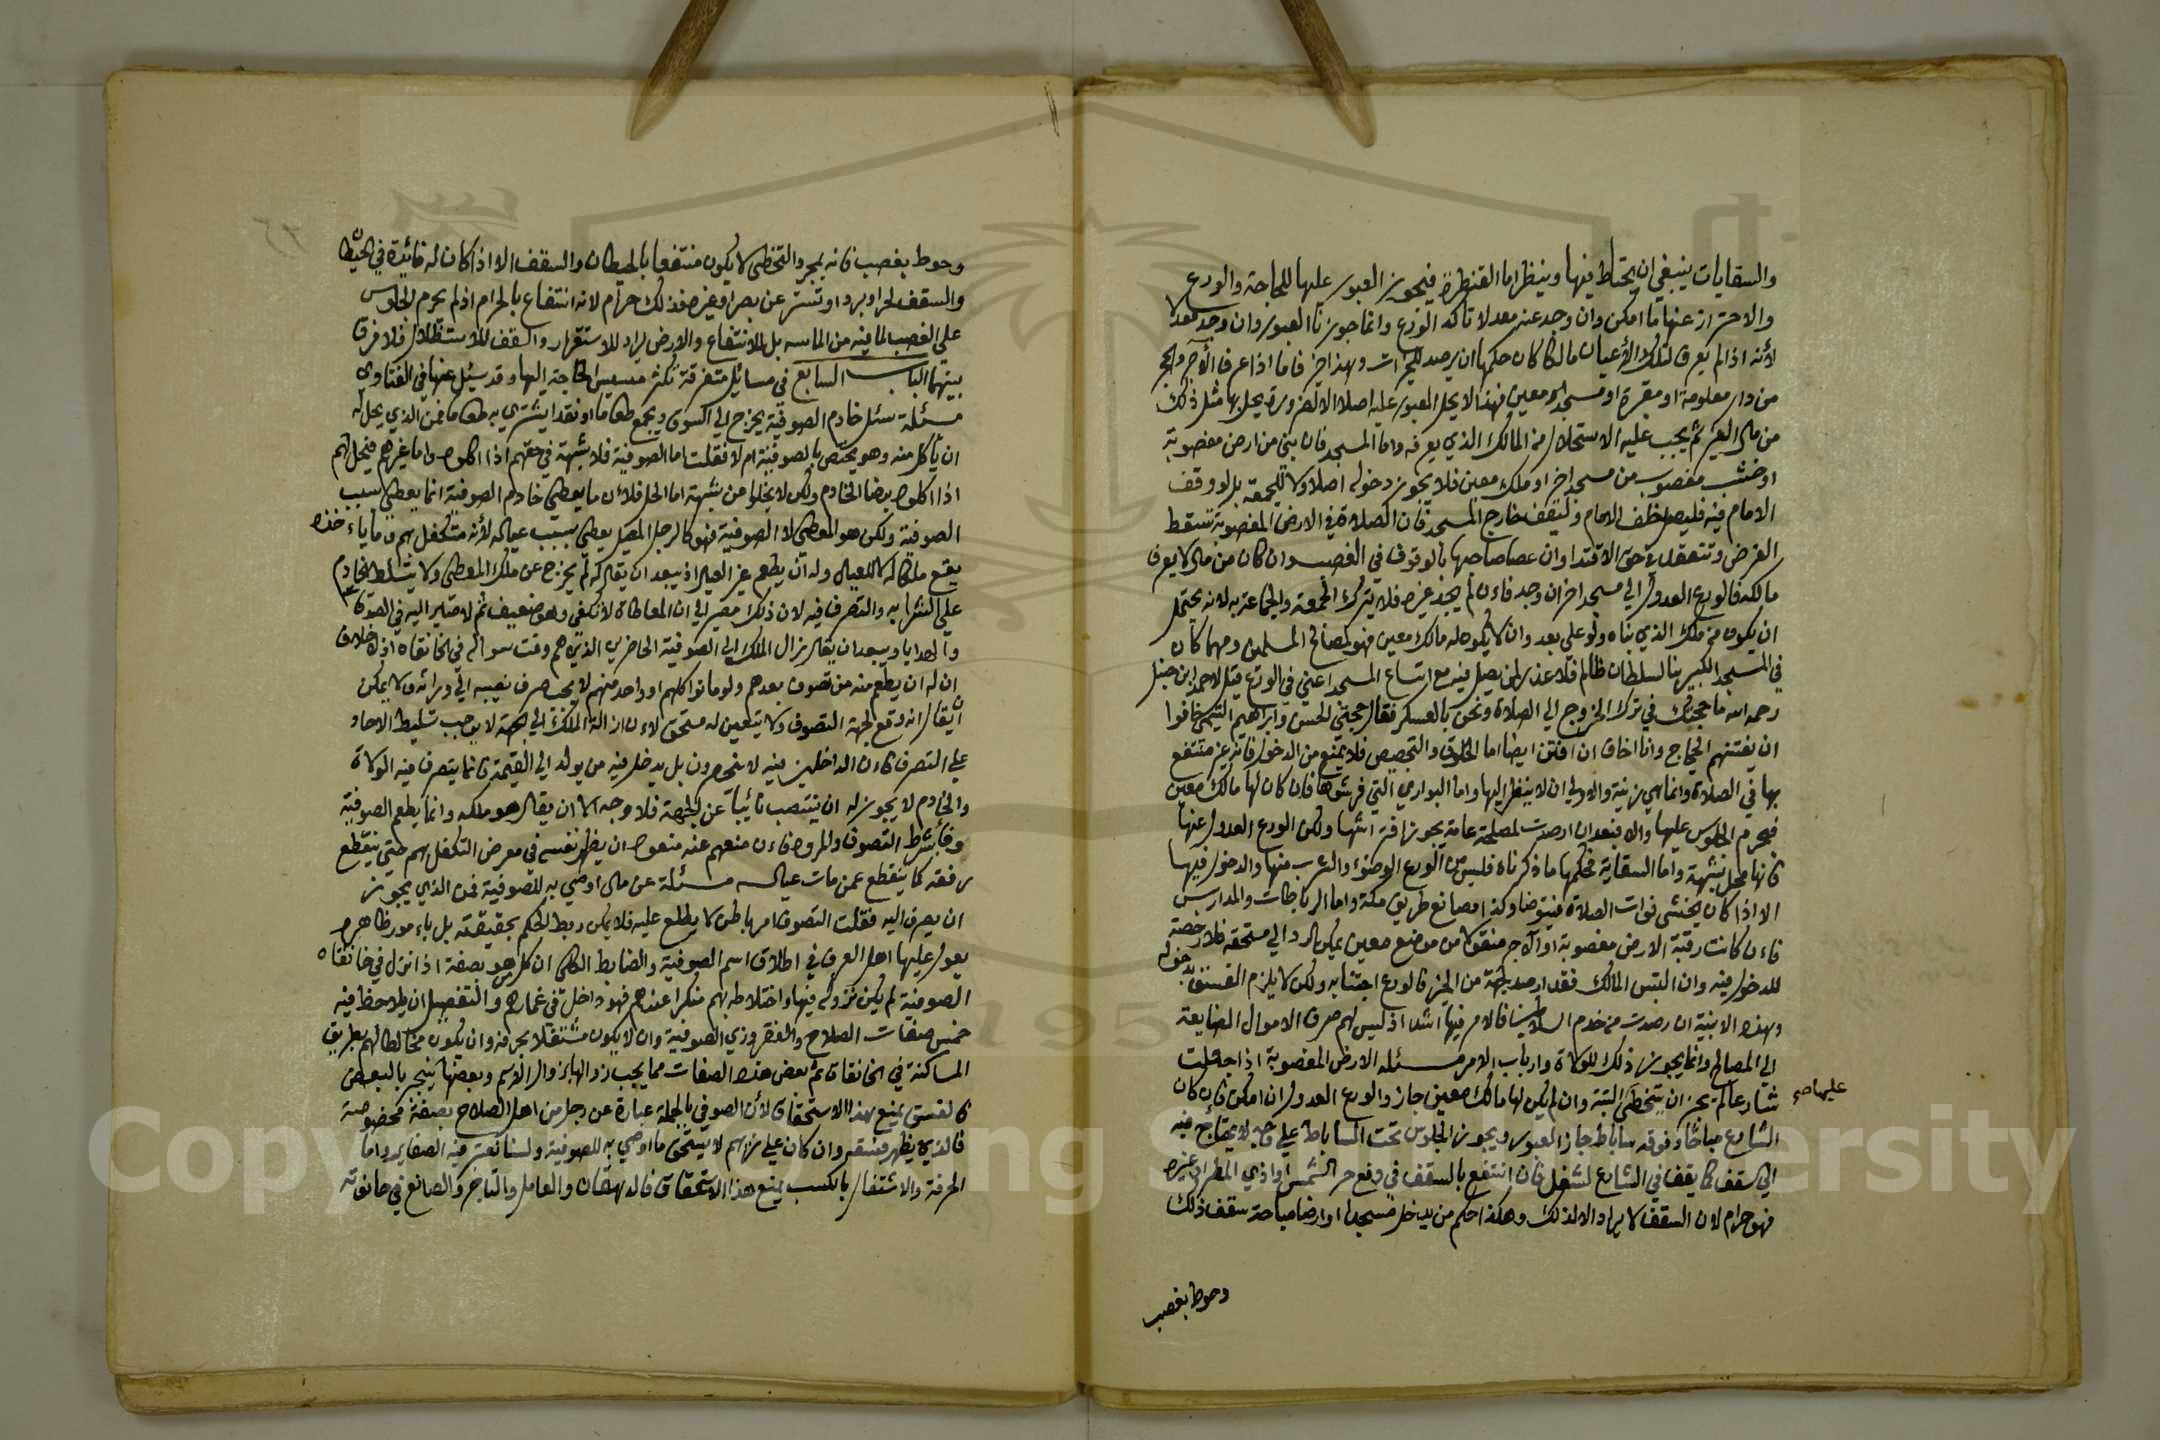 والسقايات ينبغي ان يحتاط فيها وينظر اما القنطرة فيجوز العبور عليها للحاجة والورع
والاحتراز عنها ما امكن وان وجد عنه معدلا تاكد الورع وانما جوزنا العبور وان وجد معدلا
لأنه اذا لم يعرف لتلك الأعيان مالكا كان حكمها ان يرصد للخيرات وهذا خير فاما اذا عرف ان الآجر والحجر
من دار معلومة او مقبرة او مسجد معين فهذا لا يحل العبور عليه اصلا الا لضرورة يحل بها مثل ذلك
من مال الغير ثم يجب عليه الاستحلال من المالك الذي يعرفه واما المسجد فان بني من ارض مغصوبة
او خشب مغصوب من مسجد اخر او ملك معين فلا يجوز دخوله اصلا ولا للجمعة بل لو وقف
الامام فيه فليصل خلف الامام وليقف خارج المسجد فان الصلاة في الارض المغصوبة تسقط
الفرض وتنعقد في حق الاقتدا وان عصا صاحبها بالوقوف في الغصب وان كان من مال لا يعرف
مالكه فالورع العدول الي مسجد اخر ان وجد فاءن لم يجد غيره فلا يترك الجمعة والجماعة به لانه يحتمل
ان يكون من ملك الذي بناه ولو علي بعد وان لا يكون له مالك معين فهو لمصالح المسلمين ومهما كان
في المسجد الكبير بنا لسلطان ظالم فلا عذر لمن يصل فيه مع اتساع المسجد اعني في الورع قيل لاحمد ابن حنبل
رحمه الله ما حجتك في ترك الخروج الي الصلاة ونحن بالعسكر فقال حجتي الحسن وابراهيم التيمي خافوا
ان يفتنهم الحجاج وانا اخاف ان افتن ايضا اما الخلوق والتجصيص فلا يمنع من الدخول فانه غير منتفع
بها في الصلاة وانما هي زينة والاولي ان لا ينظر اليها واما البواري التي فرشوها فان كان لها مالك معين
فيحرم الجلوس عليها والا فبعد ان ارصدت لمصلحة عامة يجوز افتراشها ولكن الورع العدول عنها
فانها محل شبهة واما السقاية فحكمها ما ذكرناه فليس من الورع الوضوء والشرب منها والدخول فيها
الا اذا كان يخشي فوات الصلاة فيتوضا وكذا مصانع طريق مكة واما الرباطات والمدارس
فاءن كانت رقبة الارض مغصوبة او الآجر منقولا من موضع معين يمكن الرد الي مستحقه فلا رخصة
للدخول فيه وان التبس المالك فقد ارصد لجهة من الخير فالورع اجتنابه ولكن لا يلزم الفسق بدخوله
وهذه الابنية ان رصدت من خدم السلاطين فالامر فيها اشد اذ ليس لهم صرف الاموال الضايعة
الي المصالح وانما يجوز ذلك للولاة وارباب الامر مسئلة الارض المغصوبة اذا جعلت
شارعا لم يجز ان يتخطي البتة وان لم يكن لها مالك معين جاز والورع العدول ان امكن فان كان
عليها صح
الشارع مباحا وفوقه ساباط جاز العبور ويجوز الجلوس تحت الساباط علي وجه لا يحتاج فيه
الي السقف كما يقف في الشارع لشغل فان انتفع بالسقف في دفع حر الشمس او اذي المطر او غيره
فهو حرام لان السقف لا يراد الا لذلك وهكذا حكم من يدخل مسجدا او ارضا مباحة سقف ذلك
وحوط بغصب
وحوط بغصب فانه بمجرد التخطي لا يكون منتفعا بالحيطان والسقف الا اذا كان له فائدة في الحيطان
والسقف لحر او برد او تستر عن بصر او غيره فذلك حرام لانه انتفاع بالحرام اذ لم يحرم الجلوس
علي الغصب لما فيه من الماسه بل للانتفاع والارض يراد للاستقرار والسقف للاستظلال فلا فرق
بينهما الباب السابع في مسائل متفرقة تكثر مسيس الحاجة اليها وقد سئل عنها في الفتاوي
مسئلة سئل خادم الصوفية يخرج الي السوق ويجمع طعاما او نقدا يشتري به طعاما فمن الذي يحل له
ان يأكل منه وهو يختص بالصوفية ام لا فقلت اما الصوفية فلا شبهة في حقهم اذا اكلوه واما غيرهم فيحل لهم
اذا اكلوه برضا الخادم ولكن لا يخلوا من شبهة اما الحل فلاءن ما يعطي خادم الصوفية انما يعطي بسبب
الصوفية ولكن هو المعطي لا الصوفية فهو كالرجل المعيل يعطي بسبب عياله لأنه متكفل بهم وما ياءخذه
يقع ملكا له لا للعيال وله ان يطعم غير العيال اذ يبعد ان يقال له لم يخرج عن ملك المعطي ولا يتسلط الخادم
علي الشرا به والتصرف فيه لان ذلك مصير الي ان المعاطاة لا تكفي وهو ضعيف ثم لا صاير اليه في الصدقات
والهدايا ويبعد ان يقال زال الملك الي الصوفية الحاضرين الذين هم وقت سواله في الخانقاه اذ لا خلاف
ان له ان يطعم منه من تصوف بعدهم ولو ماتوا كلهم او واحد منهم لا يجب صرف نصيبه الي وراثه ولا يمكن
ان يقال انه وقع لجهة التصوف ولا يتعين له مستحق لاءن ازالة الملك الي الجهة لا يوجب تسليط الاحاد
علي التصرف فاءن الداخلين فيه لا ينحصرون بل يدخل فيه من يولد الي القيمة فانما يتصرف فيه الولاة
والخادم لا يجوز له ان ينتصب نائبا عن الجهة فلا وجه الا ان يقال هو ملكه وانما يطعم الصوفية
وفا بشرط التصوف والمروءة فاءن منعهم عنه منعوه ان يظهر نفسه في معرض التكفل بهم حتي ينقطع
رفقه كما ينقطع عمن مات عياله مسئلة عن مال اوصي به للصوفية فمن الذي يجوز
ان يصرف اليه فقلت التصوف امر باطن لا يطلع عليه فلا يمكن ربط الحكم بحقيقته بل باءمور ظاهره
يعول عليها اهل العرف في اطلاق اسم الصوفية والضابط الكلي ان كل من هو بصفة اذا نزل في خانقاه
الصوفية لم يكن نزوله فيها واختلاطه بهم منكرا عندهم فهو داخل في غمارهم والتفصيل ان يلاحظ فيه
خمس صفات الصلاح والفقر وزي الصوفية وان لا يكون مشتغلا بحرفه وان يكون مخالطا لهم بطريق
المساكنة في الخانقاه ثم بعض هذه الصفات مما يجب زوالها زوال الاسم وبعضها ينجبر بالبعض
فالفسق يمنع هذا الاستحقاق لأن الصوفي بالجملة عبارة عن رجل من اهل الصلاح بصفة مخصوصة
فالذي يظهر فسقه وان كان علي زيهم لا يستحق ما اوصي به للصوفية ولسنا نعتبر فيه الصغاير واما
الحرفة والاشتغال بالكسب يمنع هذا الاستحقاق فالدهقان والعامل والتاجر والصانع في حانوته
Copyright © King Saud University
1957